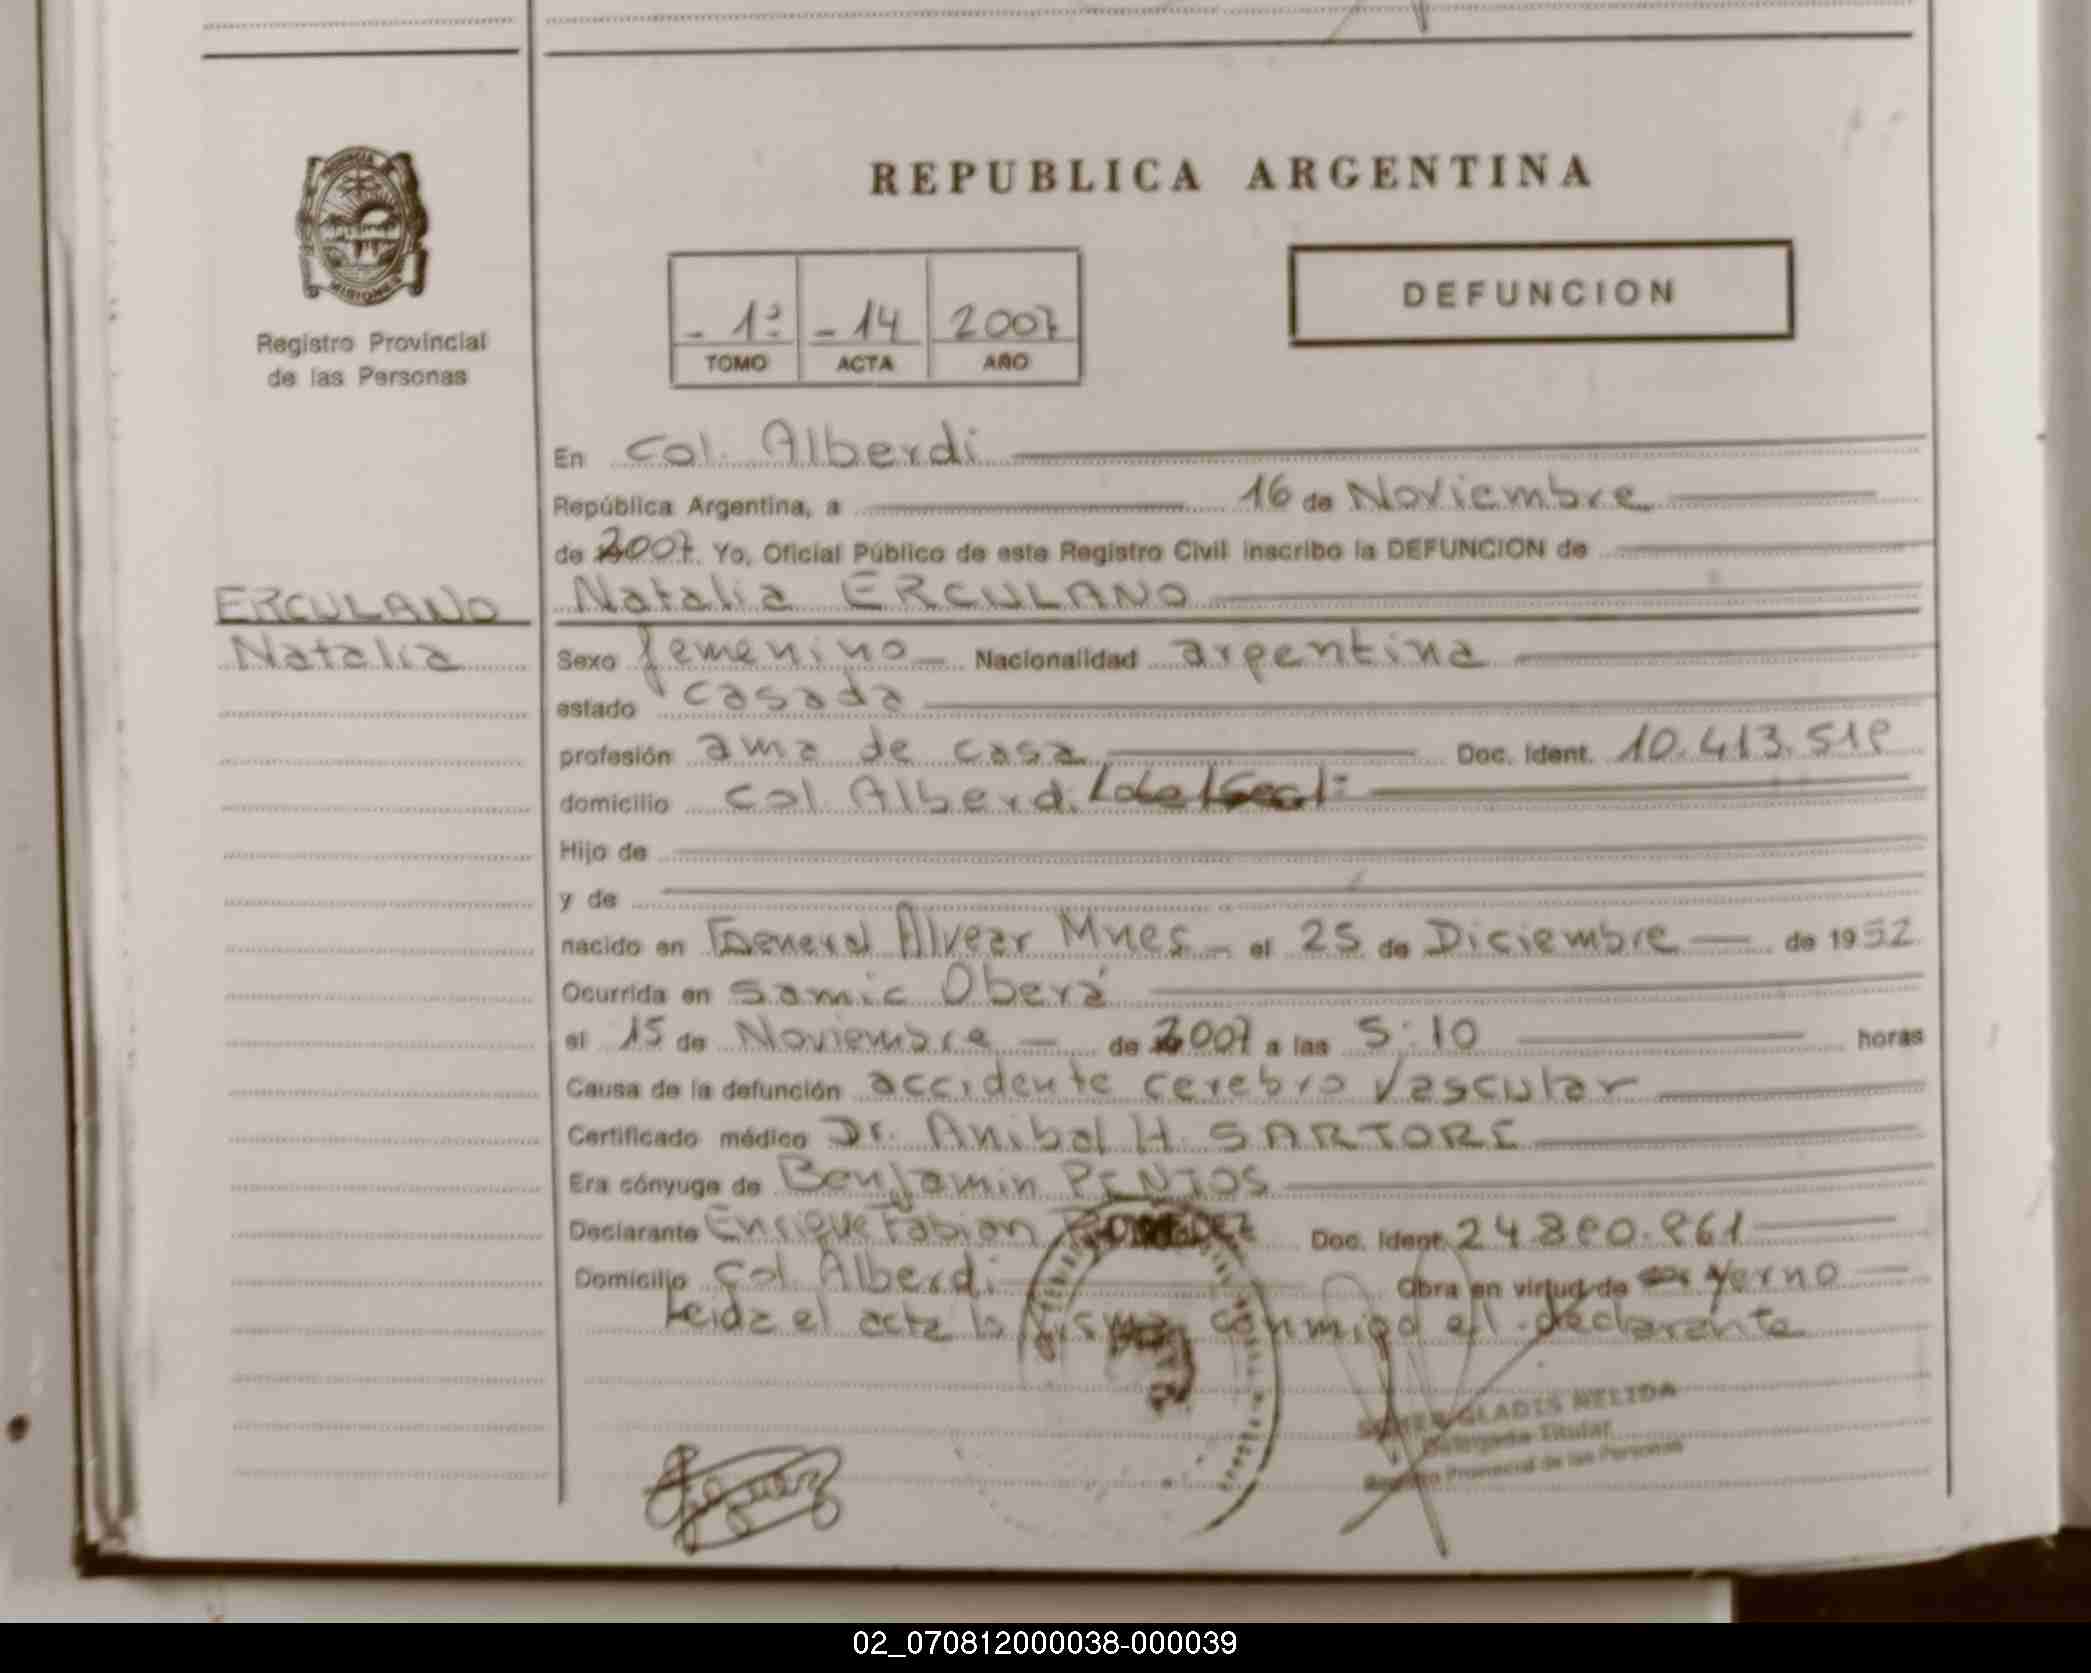 PROVINCIA
MISIONES
Registro Provincial
de las Personas
REPUBLICA ARGENTINA
- 1º - 14 2007
TOMO ACTA AÑO
DEFUNCION
En Col. Alberdi
República Argentina, a 16 de Noviembre
de 2007. Yo, Oficial Público de este Registro Civil inscribo la DEFUNCION de
ERCULANO
Natalia
Natalia ERCULANO
Sexo femenino Nacionalidad argentina
estado casada
profesión ama de casa Doc. Ident. 10.413.518
domicilio Col. Alberdi
Hijo de
y de
nacido en General Alvear Mnes el 25 de Diciembre de 1952
Ocurrida en Samic Oberá
el 15 de Noviembre de 2007 a las 5:10 horas
Causa de la defunción accidente cerebro vascular
Certificado médico Dr. Anibal H. SARTORI
Era cónyuge de Benjamin
Declarante Enrique Fabian Doc. Ident. 24.880.861
Domicilio Col. Alberdi Obra en virtud de yerno
Leida el acta la firma conmigo el declarante
GLADIS NELIDA
Delegada Titular
Registro Provincial de las Personas
02_070812000038-000039